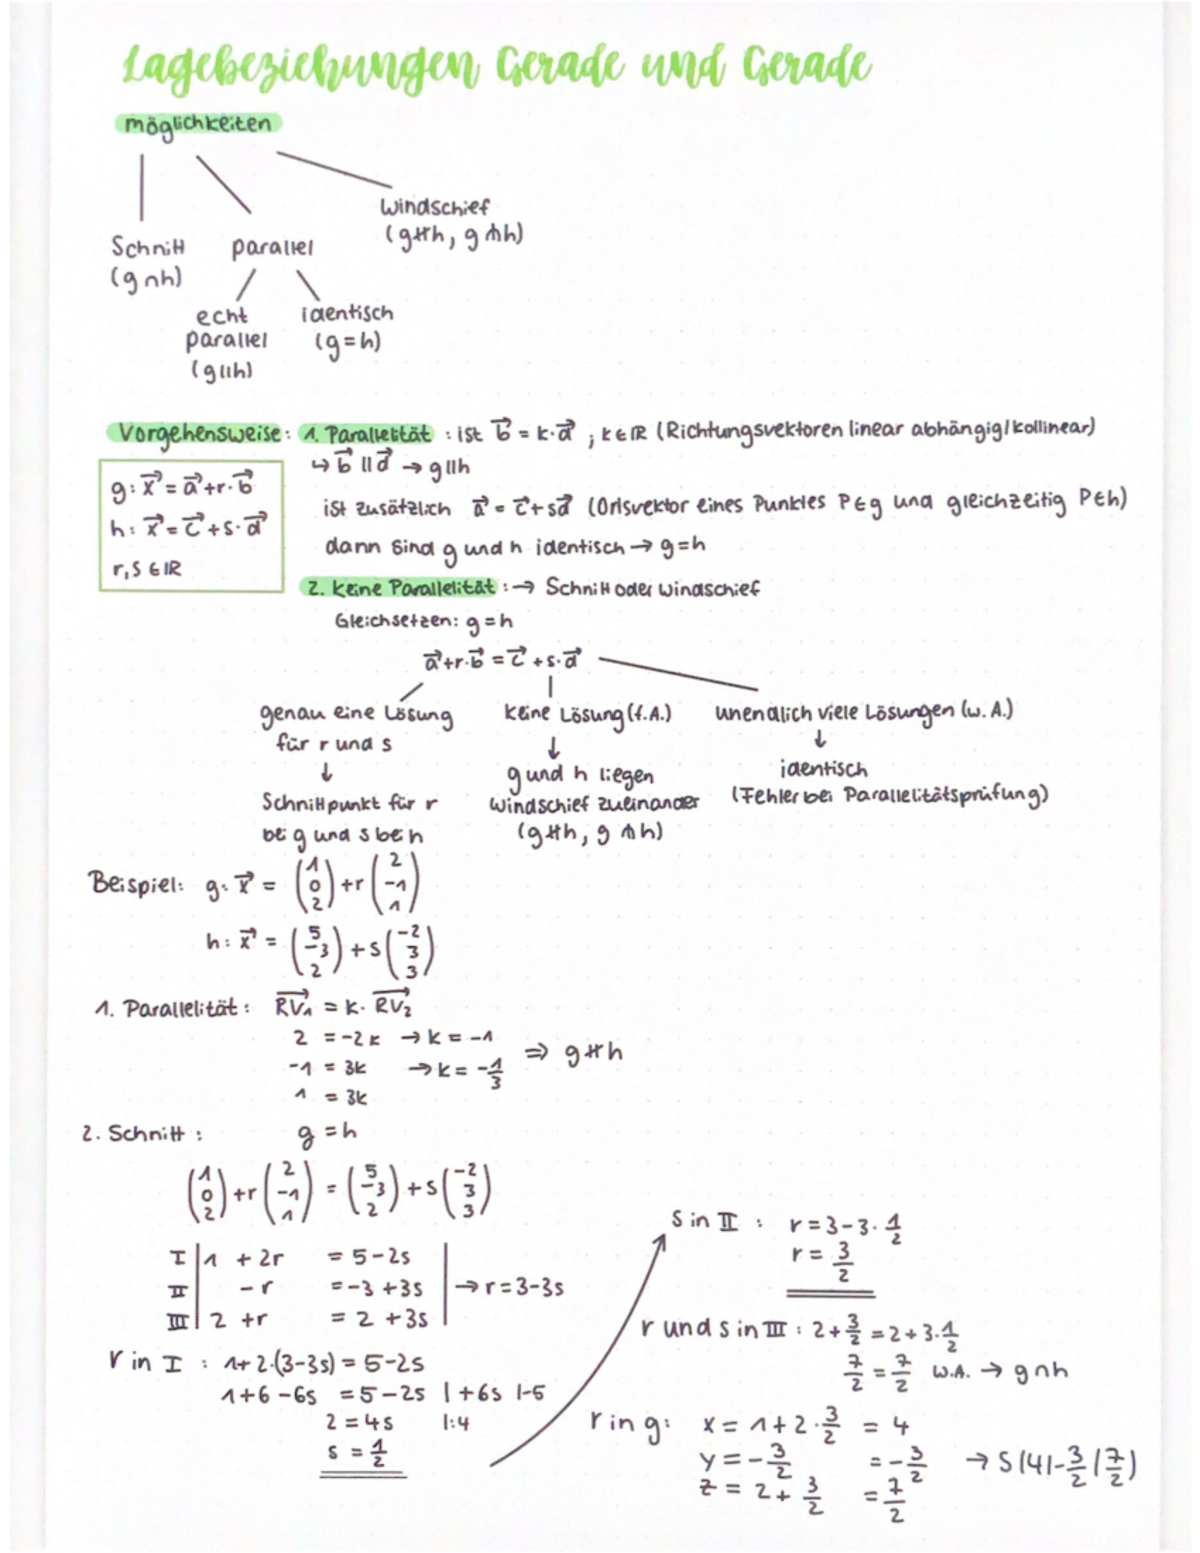 Lagebeziehungen Gerade und Gerade
möglichkeiten
Windschief
(g∦h, g⋔h)
Schnitt parallel
(g∩h)
echt identisch
parallel (g=h)
(g||h)
Vorgehensweise: 1. Parallelität : ist b⃗ = k·d⃗ ; k∈ℝ (Richtungsvektoren linear abhängig/kollinear)
↳ b⃗ || d⃗ → g||h
g: x⃗ = a⃗ + r·b⃗
h: x⃗ = c⃗ + s·d⃗
r,s ∈ ℝ
ist zusätzlich a⃗ = c⃗ + sd⃗ (Ortsvektor eines Punktes P∈g und gleichzeitig P∈h)
dann sind g und h identisch → g=h
2. keine Parallelität : → Schnitt oder windschief
Gleichsetzen: g=h
a⃗ + r·b⃗ = c⃗ + s·d⃗
genau eine Lösung
für r und s
↓
Schnittpunkt für r
bei g und s bei h
keine Lösung (f.A.)
↓
g und h liegen
windschief zueinander
(g∦h, g⋔h)
unendlich viele Lösungen (w.A.)
↓
identisch
(Fehler bei Parallelitätsprüfung)
Beispiel: g: x⃗ = (1 0 2) + r (2 -1 1)
h: x⃗ = (5 -3 2) + s (-2 3 3)
1. Parallelität: RV₁ = k· RV₂
2 = -2k → k = -1
-1 = 3k → k = -1/3 ⇒ g∦h
1 = 3k
2. Schnitt : g = h
(1 0 2) + r (2 -1 1) = (5 -3 2) + s (-2 3 3)
I | 1 + 2r = 5 - 2s
II | - r = -3 + 3s | → r = 3-3s
III | 2 + r = 2 + 3s
r in I : 1+2·(3-3s) = 5-2s
1+6 -6s = 5-2s | +6s |-5
2 = 4s |:4
s = 1/2
s in II : r = 3-3·1/2
r = 3/2
r und s in III : 2+3/2 = 2+3·1/2
7/2 = 7/2 w.A. → g∩h
r in g: x = 1+2·3/2 = 4
y = -3/2 = -3/2 → S(4|-3/2|7/2)
z = 2 + 3/2 = 7/2